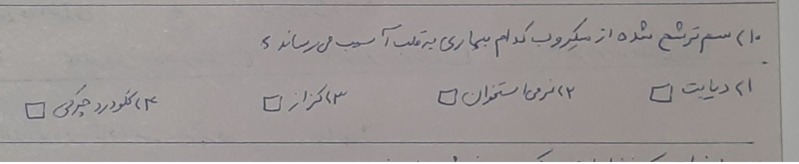 ۱۰) سم ترشح شده از میکروب کدام بیماری به قلب آسیب می رساند ؟
۱) دیابت □ ۲) نرمی استخوان □ ۳) کزاز □ ۴) گلودرد چرکی □